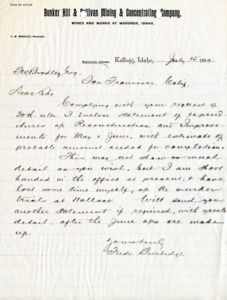 Bunker Hill & Sullivan Mining & Concentrating Company.
MINES AND WORKS AT WARDNER, IDAHO.
F. W. BRADLEY, PRESIDENT.
Kellogg, Idaho, July 14
F W Bradley Esq,
San Francisco Calif.
Dear Sir:
Complying with your request of
30th ult. I enclose statement of expend-
itures of Reconstruction and Improve-
ments for May & June, with estimate of
probable amount needed for completion.
This may not show as much
detail as you wish, but I am short
handed in the office at present, & have
lost some time myself, at the murder
trials at Wallace. Will send you
another statement if required, with greater
detail, after the June ops are made
up.
Yours truly,
Fredk Burbidge